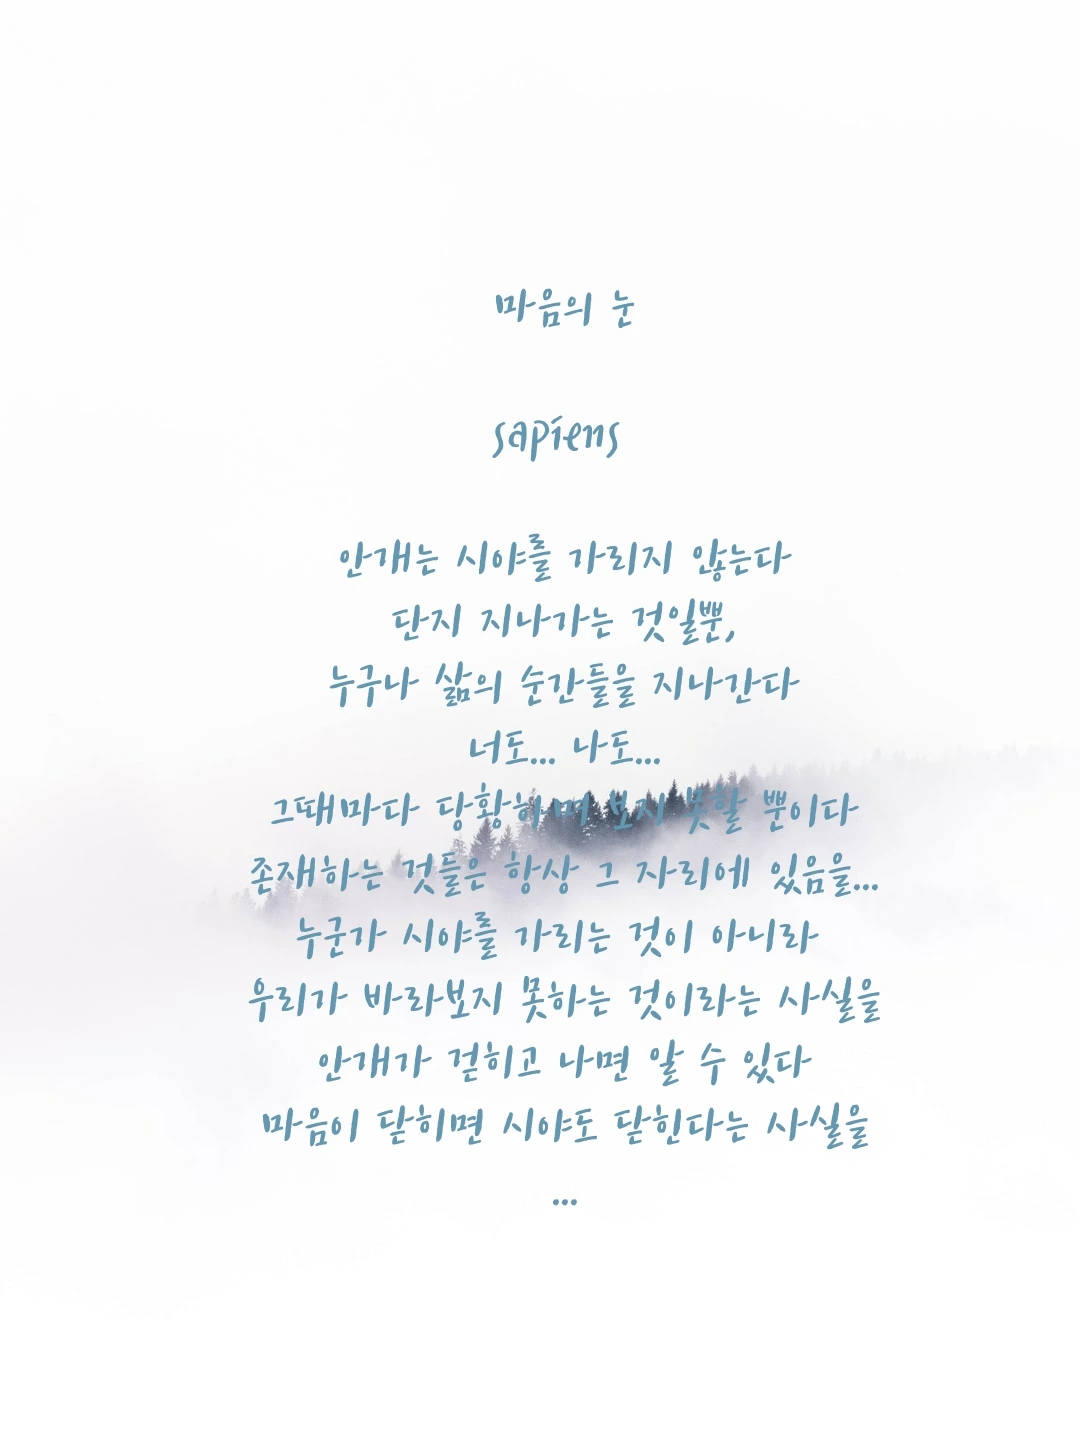 마음의 눈
sapiens
안개는 시야를 가리지 않는다
단지 지나가는 것일뿐,
누구나 삶의 순간들을 지나간다
너도... 나도...
그때마다 당황하며 보지 못할 뿐이다
존재하는 것들은 항상 그 자리에 있음을...
누군가 시야를 가리는 것이 아니라
우리가 바라보지 못하는 것이라는 사실을
안개가 걷히고 나면 알 수 있다
마음이 닫히면 시야도 닫힌다는 사실을
...